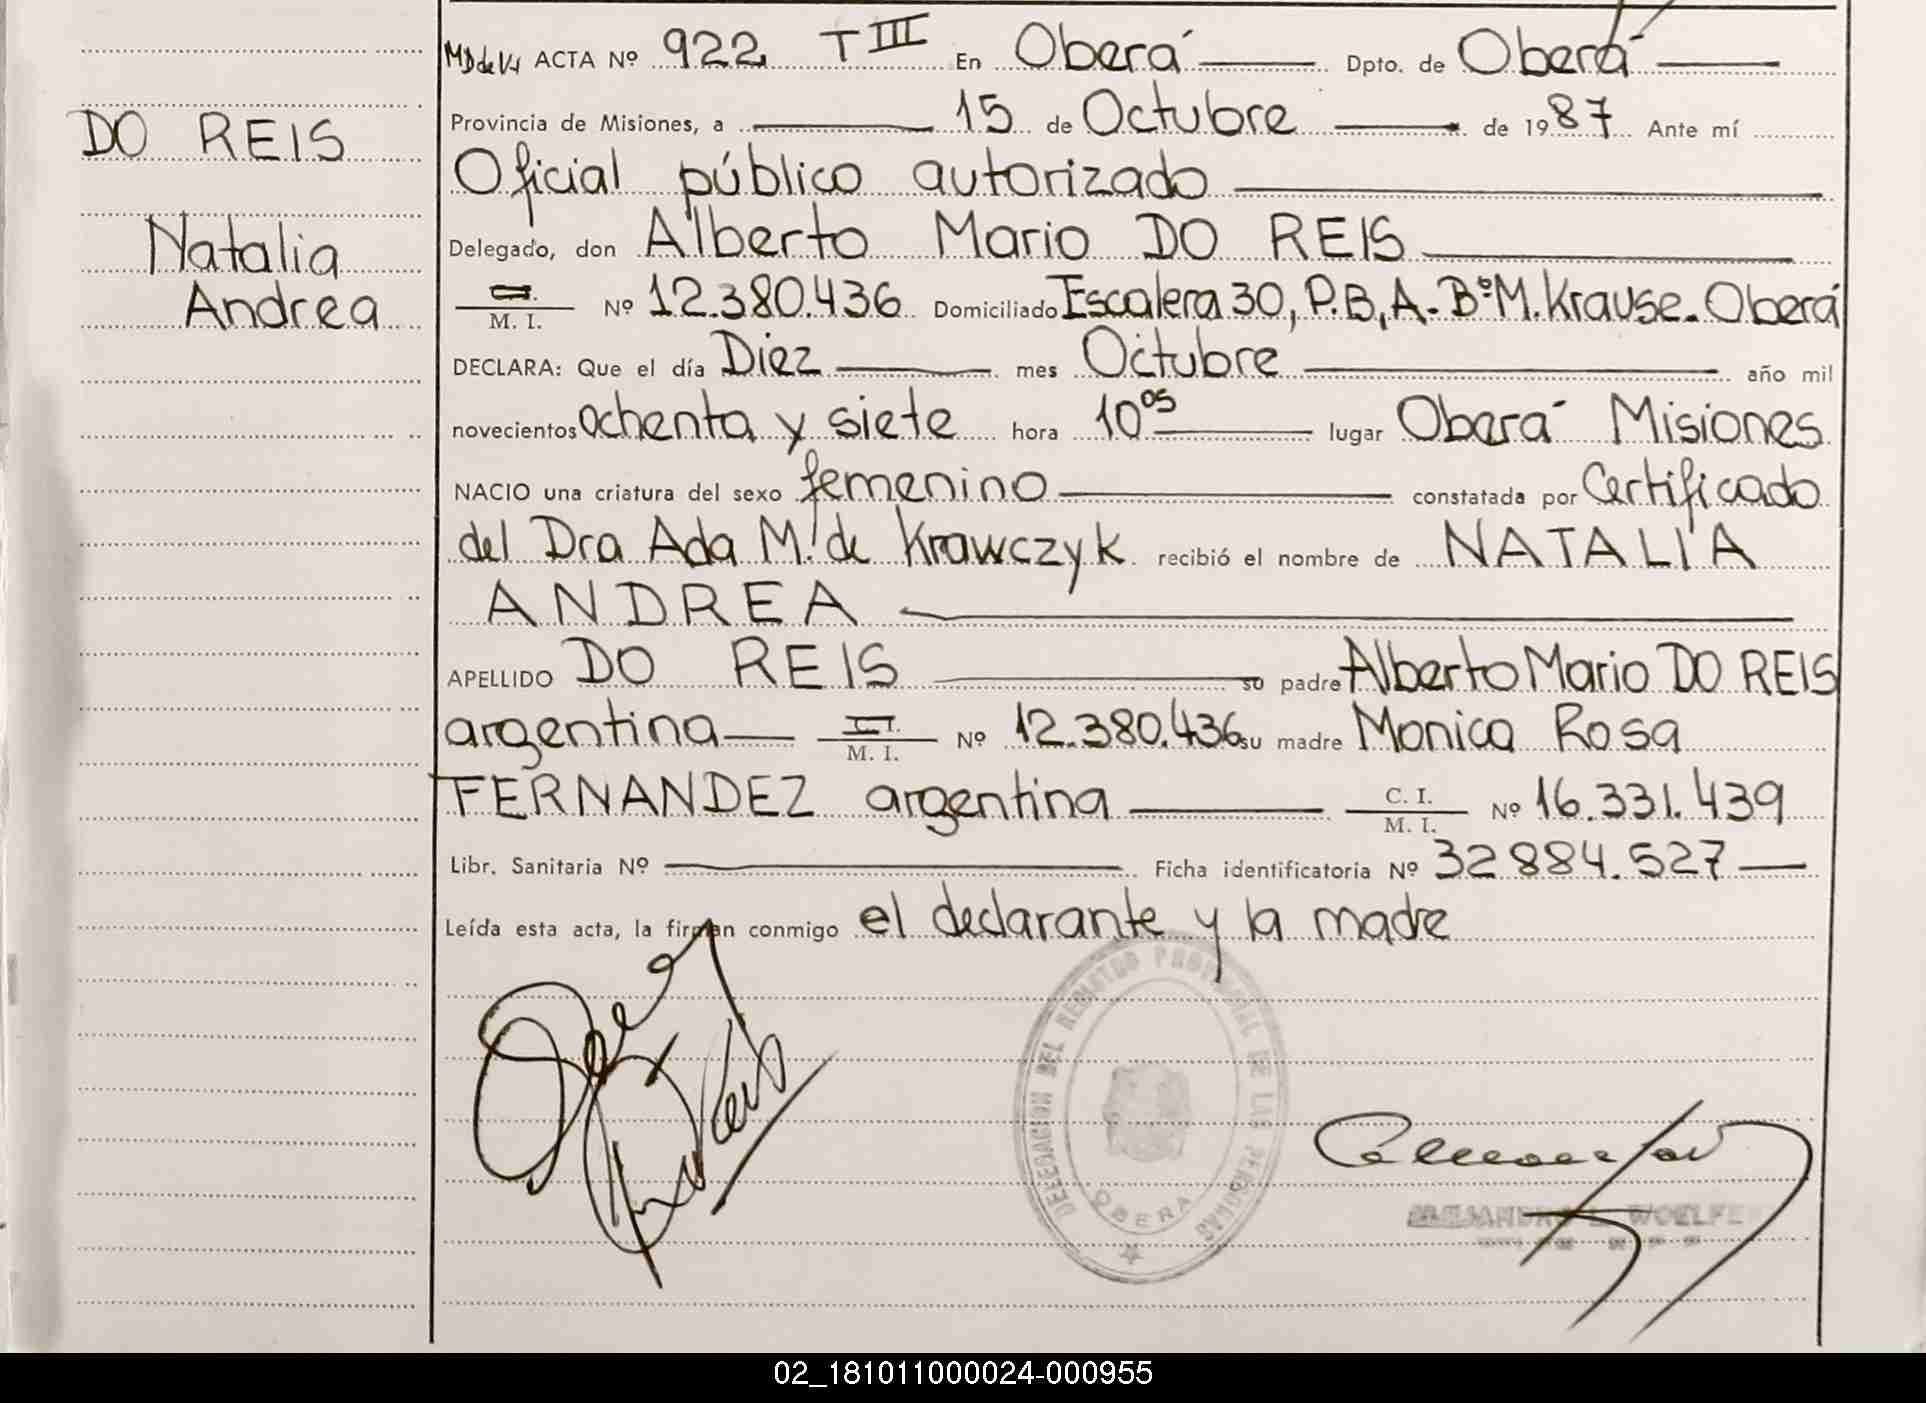 DO REIS
Natalia
Andrea
MD de V. ACTA Nº 922 T III En Oberá Dpto. de Oberá
Provincia de Misiones, a 15 de Octubre de 1987 Ante mí
Oficial público autorizado
Delegado, don Alberto Mario DO REIS
M. I. Nº 12.380.436 Domiciliado Escalera 30, P.B, A. Bº M. Krause. Oberá
DECLARA: Que el día Diez mes Octubre año mil
novecientos ochenta y siete hora 10 05 lugar Oberá Misiones
NACIO una criatura del sexo femenino constatada por Certificado
del Dra Ada M. de Krawczyk recibió el nombre de NATALIA
ANDREA
APELLIDO DO REIS su padre Alberto Mario DO REIS
argentina M. I. Nº 12.380.436 su madre Monica Rosa
FERNANDEZ argentina C. I. M. I. Nº 16.331.439
Libr. Sanitaria Nº Ficha identificatoria Nº 32884.527
Leída esta acta, la firman conmigo el declarante y la madre
DELEGACION DEL REGISTRO PROVINCIAL DE LAS PERSONAS
OBERA
ALEJANDRO L. WOELFE
02_181011000024-000955